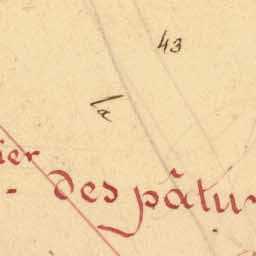 43
la
ier
- des pâtu